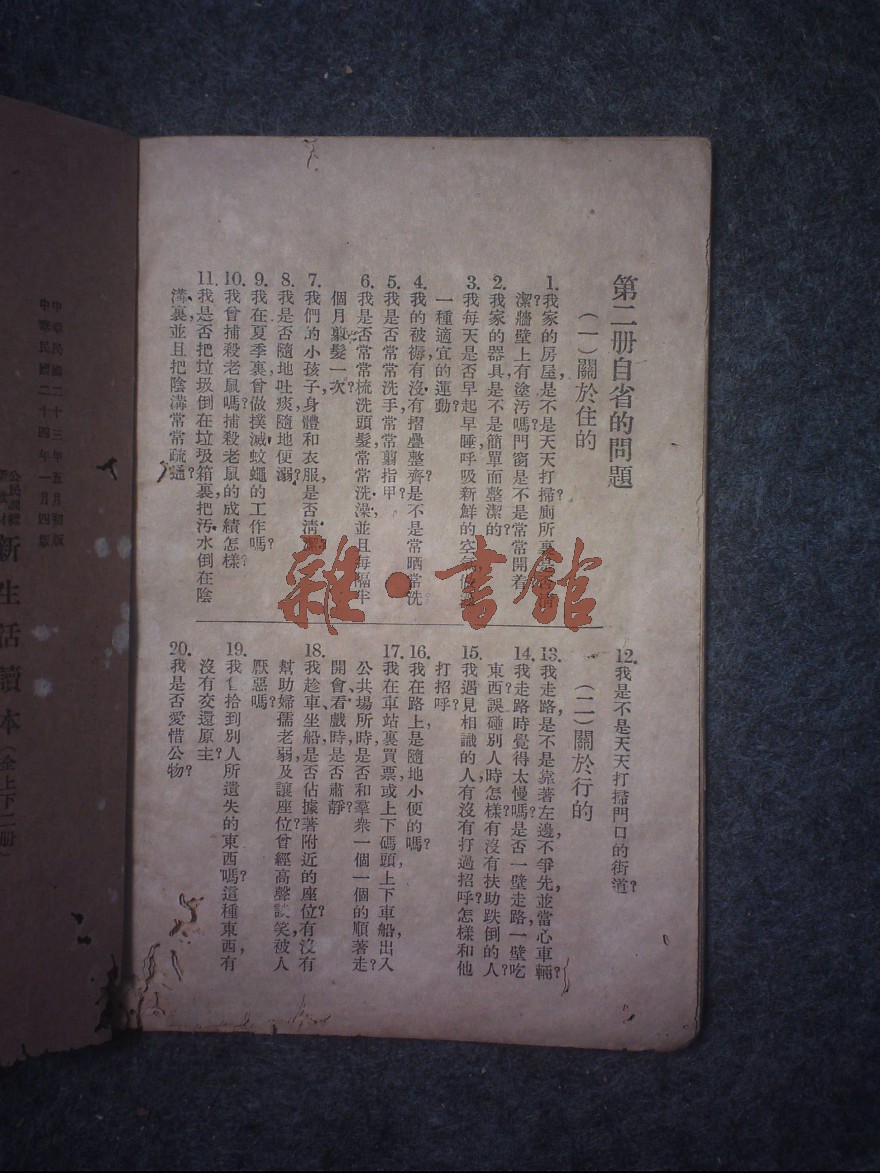 第二册自省的問題
(一)關於住的
1.我家的房屋是不是天天打掃?廁所裏
潔?牆壁上有塗汚嗎?門窗是不是常常開着?
2.我家的器具是不是簡單而整潔的?
3.我每天是否早起早睡,呼吸新鮮的空
一種適宜的運動?
4.我的被褥有沒有摺疊整齊?是不是常晒常洗?
5.我是否常常洗手,常常翦指甲?
6.我是否常常梳洗頭髮,常常洗澡,並且每隔半
個月翦髮一次?
7.我們的小孩子身體和衣服,是否清潔?
8.我是否隨地吐痰,隨地便溺?
9.我在夏季裏曾做撲滅蚊蠅的工作嗎?
10.我曾捕殺老鼠嗎?捕殺老鼠的成績怎樣?
11.我是否把垃圾倒在垃圾箱裏,把汚水倒在陰
溝裏,並且把陰溝常常疏通?
12.我是不是天天打掃門口的街道?
(二)關於行的
13.我走路是不是靠著左邊,不爭先,並當心車輛?
14.我走路時覺得太慢嗎?是否一壁走路,一壁吃
東西?誤碰別人時怎樣?有沒有扶助跌倒的人?
15.我遇見相識的人,有沒有打過招呼?怎樣和他
打招呼?
16.我在路上是隨地小便的嗎?
17.我在車站裏買票,或上下碼頭,上下車船,出入
公共場所時,是否和羣衆一個一個的順著走?
開會、看戲時,是否肅靜?
18.我趁車坐船,是否佔據著附近的座位?有沒有
幫助婦孺老弱,及讓座位?曾經高聲談笑,被人
厭惡嗎?
19.我拾到別人所遺失的東西嗎?這種東西,有
沒有交還原主?
20.我是否愛惜公物?
中華民國二十三年五月初版
中華民國二十四年一月四版
新生活讀本(全上下二册)
雜·書館